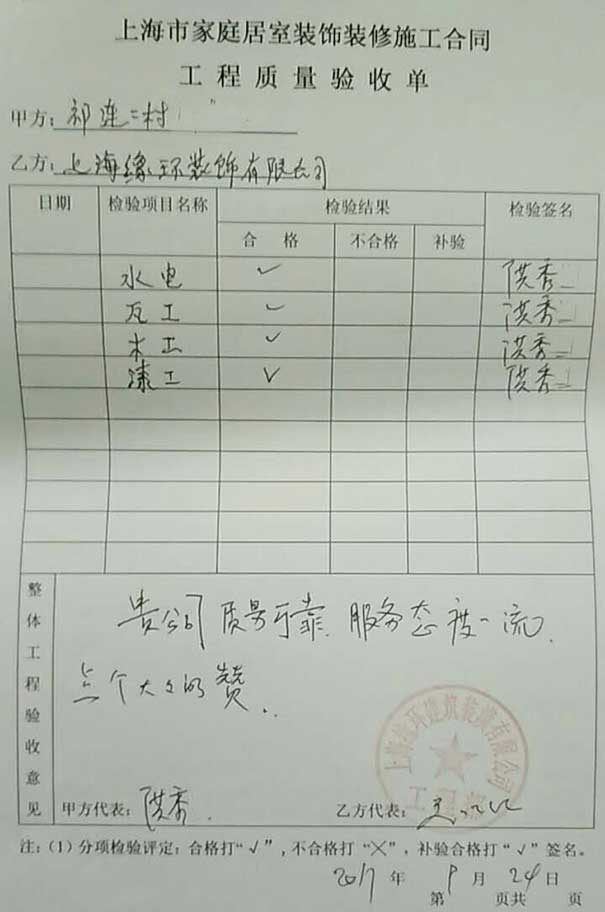 上海市家庭居室装饰装修施工合同
工程质量验收单
甲方：祁连二村
乙方：上海缘环装饰有限公司
日期 检验项目名称 检验结果 检验签名
合格 不合格 补验
水电 ✓ 洪秀
瓦工 ✓ 洪秀
木工 ✓ 洪秀
漆工 ✓ 洪秀
整体工程验收意见
贵公司质量可靠 服务态度一流.
点个大大的赞..
环建筑装潢有限公司
甲方代表：洪秀. 乙方代表：
注：(1) 分项检验评定：合格打“√”，不合格打“╳”，补验合格打“√”签名。
2017年9月24日
第 页共 页